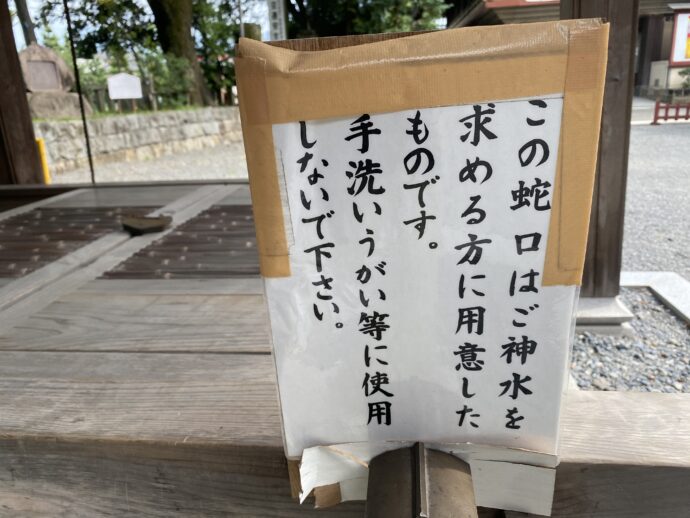 この蛇口はご神水を
求める方に用意した
ものです。
手洗いうがい等に使用
しないで下さい。